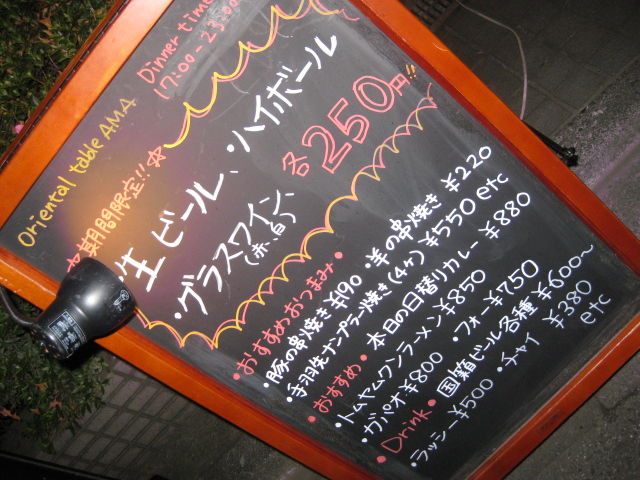 Oriental table AMA
Dinner time
17:00-23:00
☆期間限定!!☆
生ビール、・ハイボール
・グラスワイン、
(赤、白)
各250円!!
・おすすめおつまみ・
・豚の串焼き ¥190 ・羊の串焼き ¥220
・手羽先ナンプラー焼き(4ヶ) ¥550 etc
・おすすめ・本日の日替りカレー ¥880
・トムヤムクンラーメン ¥850
・ガパオ ¥800 ・フォー ¥750
・Drink・国籍ビール各種 ¥600~
・ラッシー ¥500 ・チャイ ¥380
etc